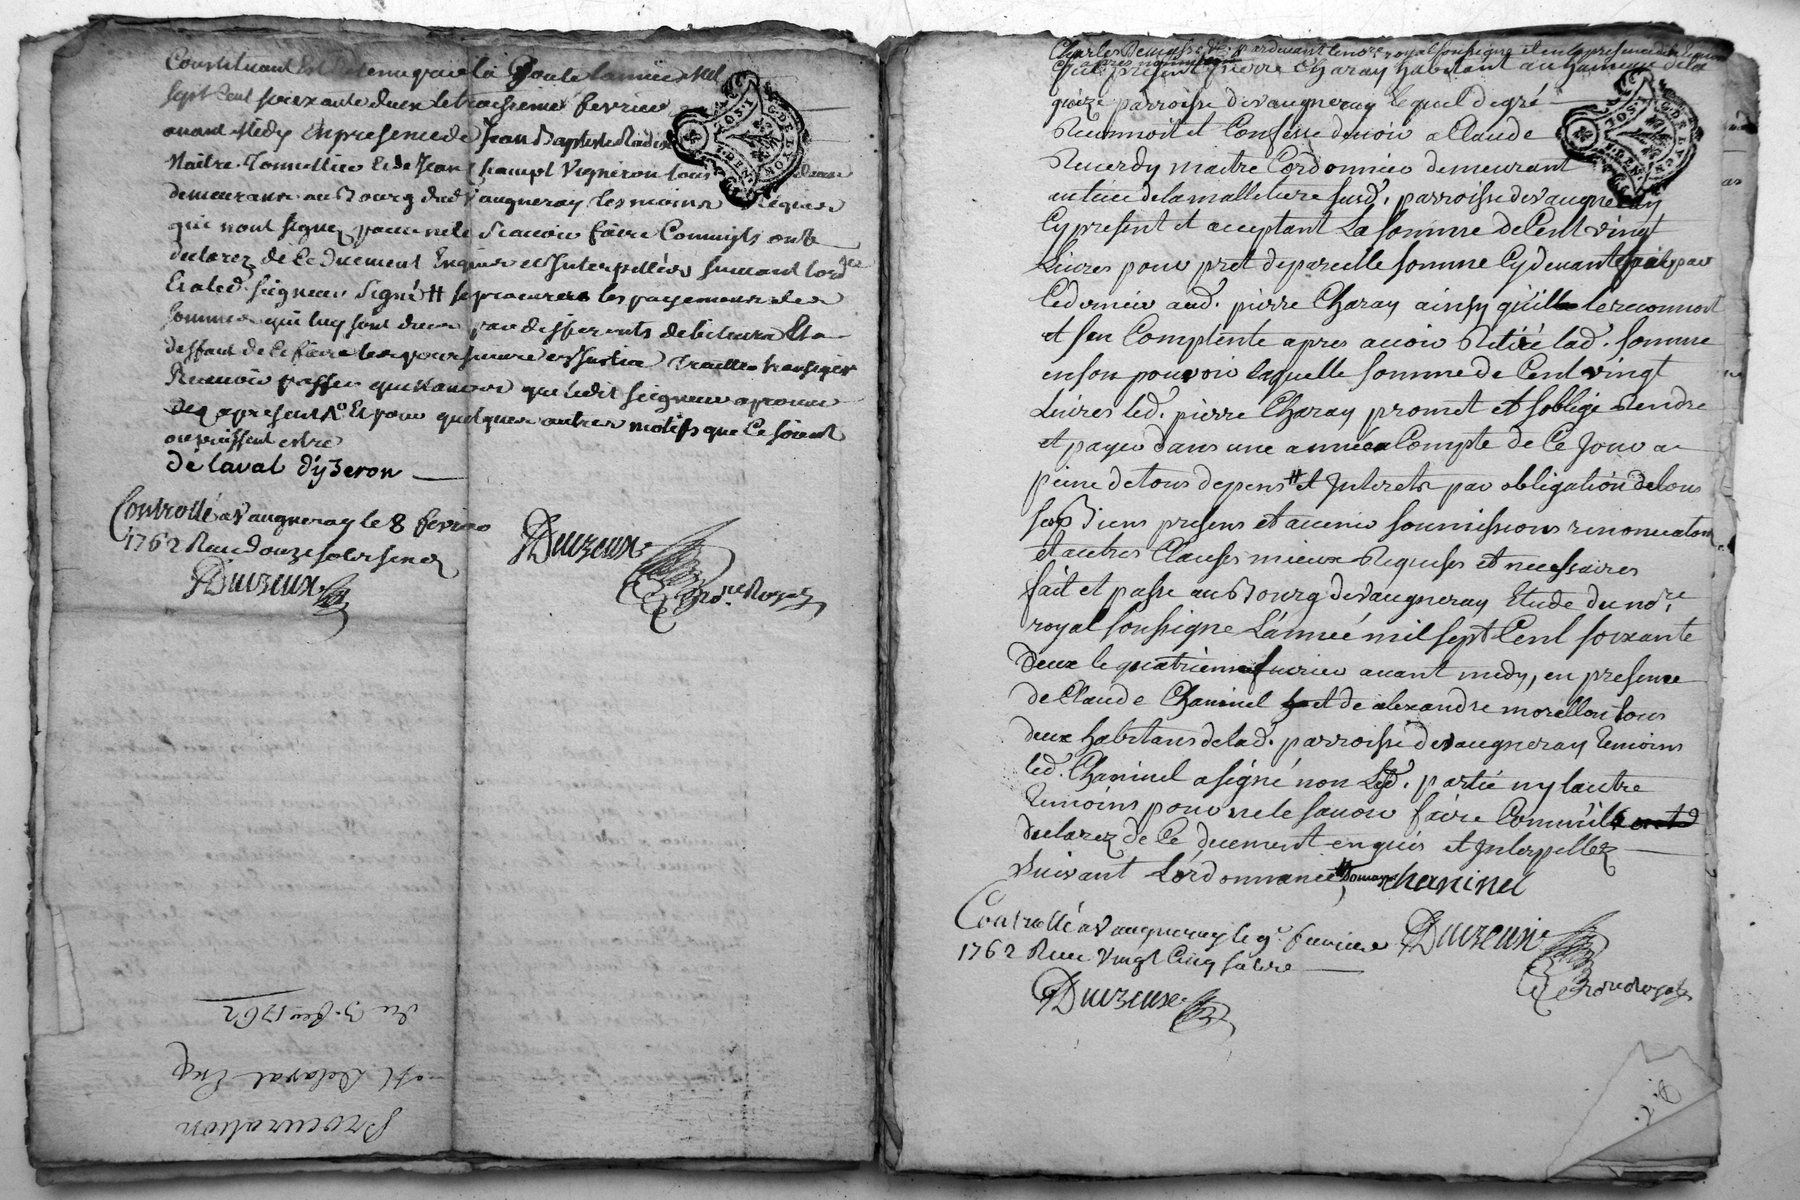 Constituant Est Detenu par la Goute Lannee Mil
sept Cent soixante deux le troisieme fevrier
avant Midy En presence de Jean Baptiste
Maitre Tonnellier Et de Jean Champt Vigneron tous deux
demeurans au Bourg dud Vaugneray temoins Requis
qui nont signez pour ne le scavoir faire Comm'ils ont
declarez de Ce Duement Enquis et Interpellés suivant lord.ce
Et a led. seigneur signé # se procurera les payements des
sommes qui luy sont dues par differents debiteurs Et a
deffaut de Ce faire les poursuivre en Justice Traitter transiger
Recevoir passer quittances que ledit seigneur aprouve
dez apresent Et pour quelques autres motifs que Ce soient
ou puissent estre
De laval d'yzeron
Controllé a Vaugneray le 8 fevrier
1762 Reçu Douze sols six den.
Duizeux
Duizeux
No.re Royal
du 3. fev. 1762
M Delaval
Procuration
Charles pardevant le no.re royal soussigné et en la presence des temoins
après nommés
fut present pierre Charay habitant au hameau de la
paroisse de Vaugneray lequel de gré
Reconnoit et Confesse devoir a Claude
Reverdy maitre Cordonnier demeurant
au lieu de la malletiere sud. parroisse de Vaugneray
Cy present et acceptant La somme de Cent vingt
Livres pour pret de pareille somme Cy devant fait par
Ce dernier aud. pierre Charay ainsy qu'il le reconnoit
et s'en Comptente apres avoir Retiré lad. somme
en son pouvoir Laquelle somme de Cent vingt
Livres led. pierre Charay promet et s'oblige Rendre
et payer dans une année a Compte de Ce Jour a
peine de tous depens # et Interets par obligation de tous
ses Biens presens et avenir soumissions renonciations
et autres Clauses mieux Requises et necessaires
fait et passé au Bourg de Vaugneray Etude du no.re
royal soussigné L'année mil sept Cent soixante
Deux le quatrieme fevrier avant midy, en presence
de Claude Chaninel et de alexandre morellon tous
deux habitans de lad. parroisse de Vaugneray temoins
led. Chaninel a signé non Led. partie ny lautre
temoins pour ne le savoir faire Comm'ils ont
declarez de Ce duement enquis et Interpellez
Suivant L'ordonnance # Domages Chaninel
Controllé a Vaugneray le 9.e fevrier
1762 Reçu Vingt Cinq sols
Duizeux
No.re Royal
Duizeux